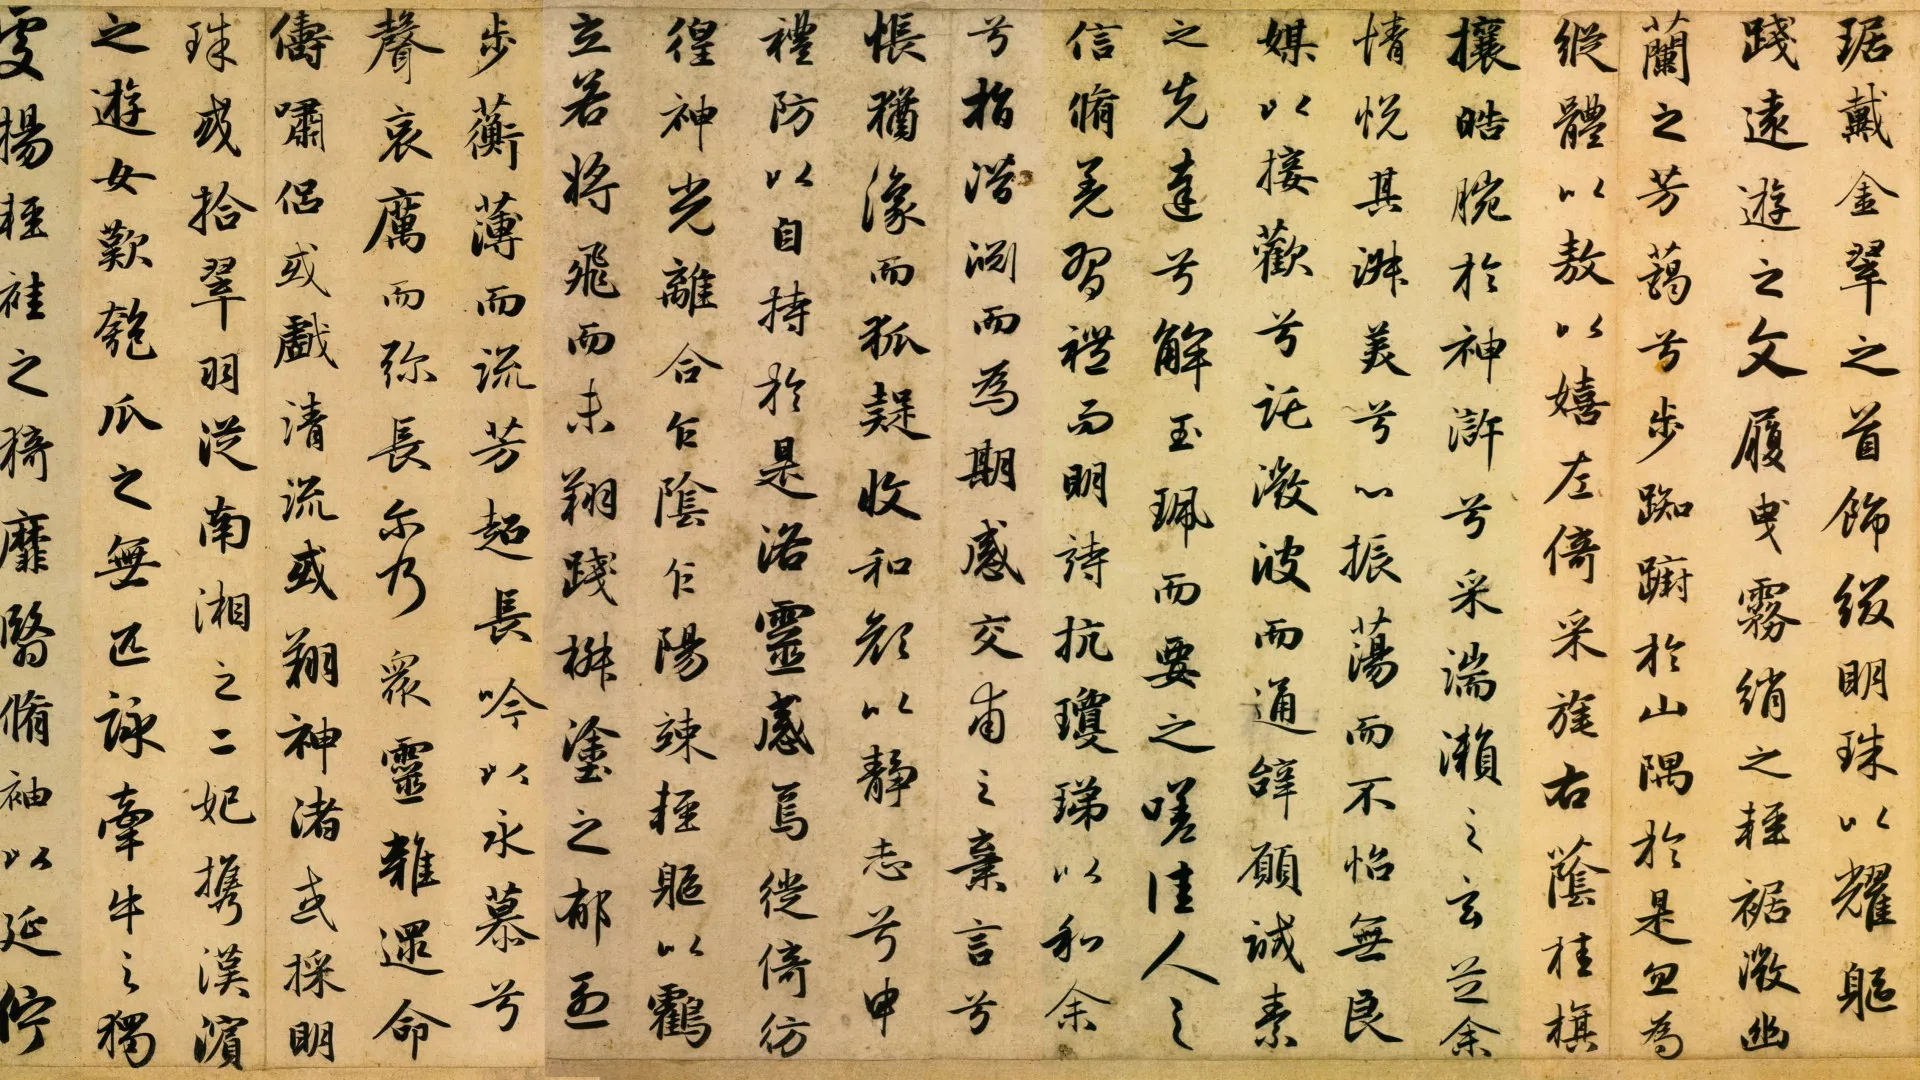 琚戴金翠之首飾綴明珠以耀軀
踐遠遊之文履曳霧綃之輕裾微幽
蘭之芳藹兮步踟躕於山隅於是忽焉
縱體以敖以嬉左倚采旄右蔭桂旗
攘皓腕於神滸兮采湍瀨之玄芝余
情悅其淑美兮心振蕩而不怡無良
媒以接歡兮託微波而通辭願誠素
之先達兮解玉珮而要之嗟佳人之
信脩羌習禮而明詩抗瓊珶以和余
兮指潛淵而為期感交甫之棄言兮
悵猶豫而狐疑收和顏以靜志兮申
禮防以自持於是洛靈感焉徙倚彷
徨神光離合乍陰乍陽竦輕軀以鶴
立若將飛而未翔踐椒塗之郁烈
步蘅薄而流芳超長吟以永慕兮
聲哀厲而弥長尔乃衆靈雜遝命
儔嘯侶或戲清流或翔神渚或採明
珠或拾翠羽從南湘之二妃攜漢濱
之遊女歎匏瓜之無匹詠牽牛之獨
處揚輕袿之猗靡翳脩袖以延佇